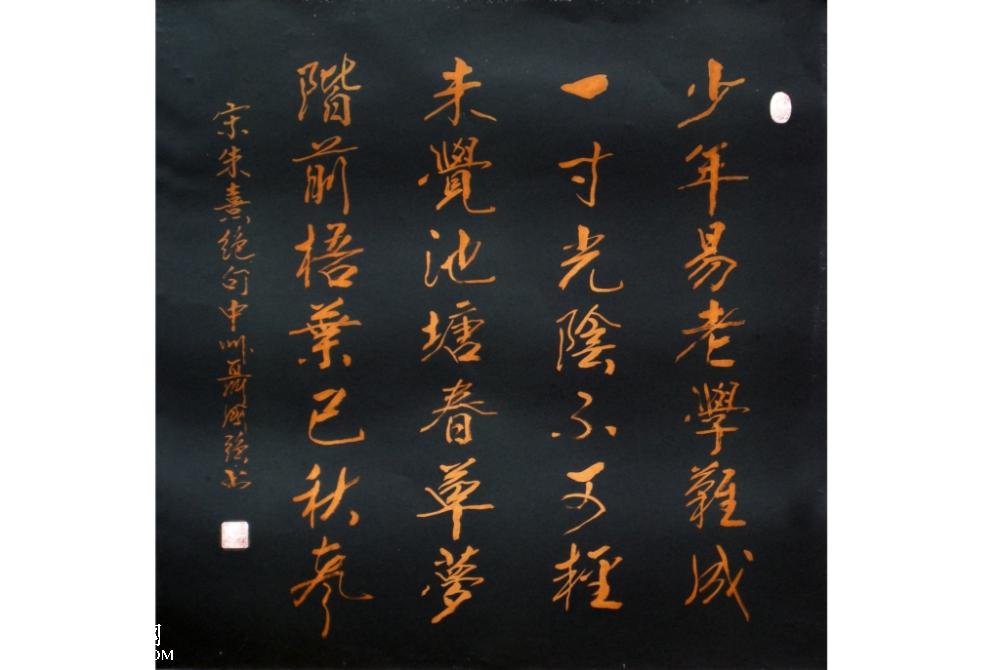 少年易老學難成
一寸光陰不可輕
未覺池塘春草夢
階前梧葉已秋聲
宋朱熹絕句中州聶國強書
OM